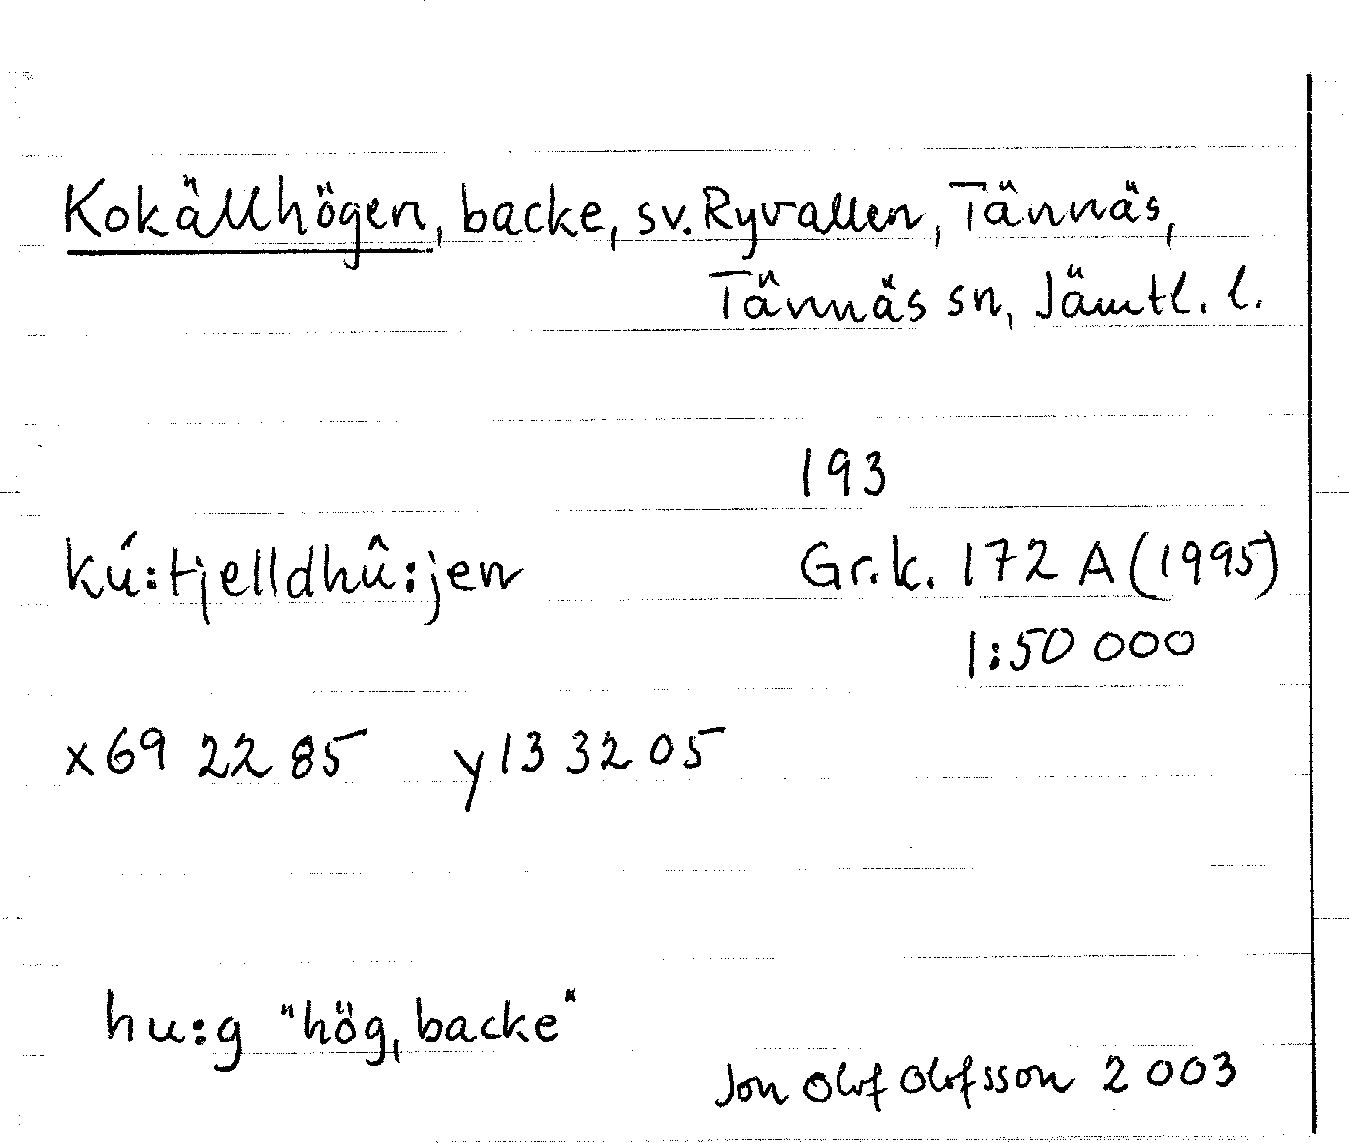 Kokällhögen, backe, sv. Ryvallen, Tännäs,
Tännäs sn, Jämtl. l.
193
kú:tjelldhû:jen Gr.k. 172 A (1995)
1:50 000
x 69 22 85 y 13 32 05
hu:g "hög, backe"
Jon Olof Olofsson 2003